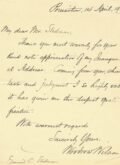 Princeton, 1st April, 19
My dear Mr. Stedman,
Thank you most warmly for your
kind note of appreciation of my Inaugural
Address. Coming from you, whose
taste and judgment I so highly value
it has given me the deepest grati-
fication.
With warmest regards
Sincerely Yours,
Woodrow Wilson